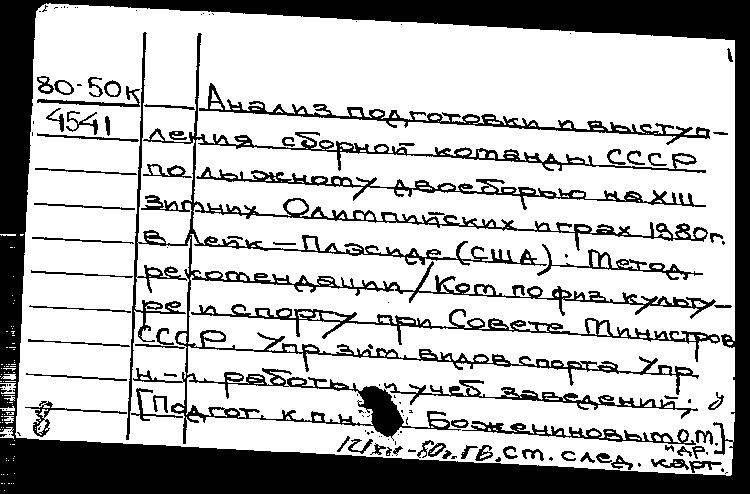 80-50к
4541
Анализ подготовки и выступ-
ления сборной команды СССР
по лыжному двоеборью на XIII
зимних Олимпийских играх 1980г.
в Лейк-Плэсиде (США): Метод.
рекомендации/Ком. по физ. культу-
ре и спорту при Совете Министров
СССР. Упр. зим. видов спорта. Упр.
н.-и. работы и учеб. заведений;
[Подгот. к.п.н. Божениновым О.М.
и др.]
см. след. карт.